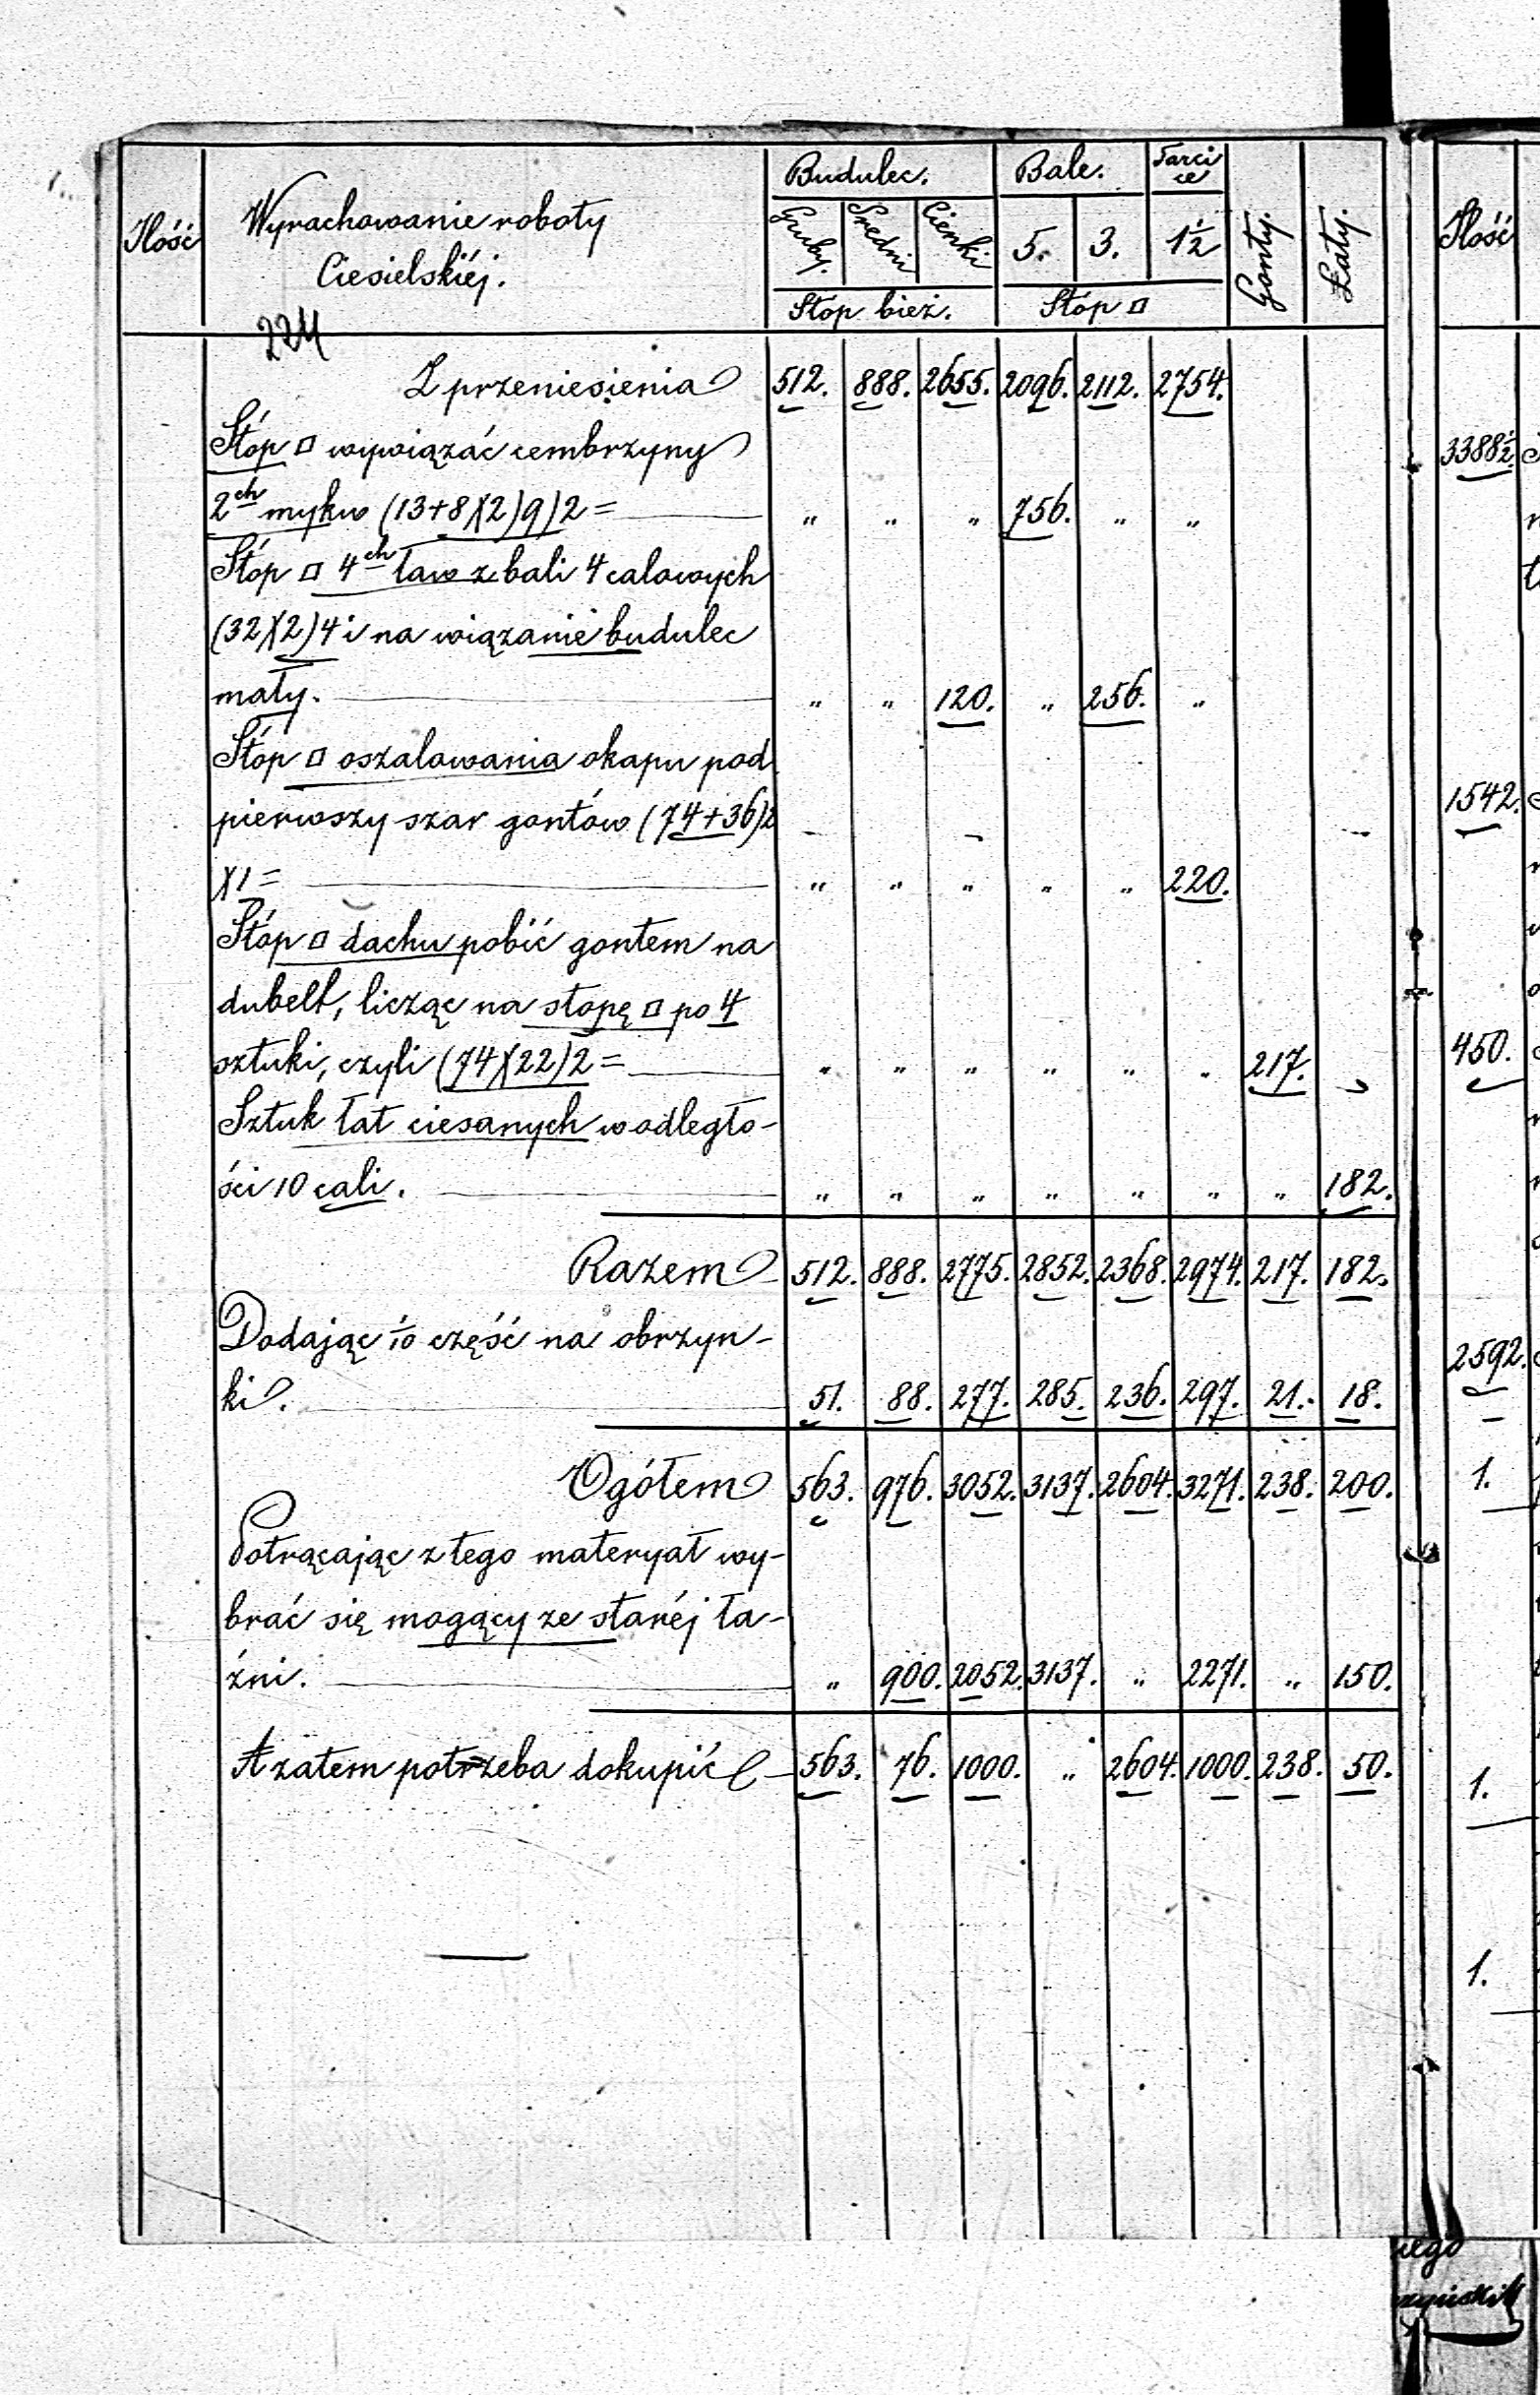 Ilość Wyrachowanie roboty Ciesielskiéj. Budulec. Bale. Tarcice Gonty. Łaty. Ilość
Gruby. Średni Cienki 5. 3. 1½
Stop bież. Stóp □
224
Z przeniesienia 512. 888. 2655. 2096. 2112. 2754.
Stóp □ wywiązać cembrzyny
2ch mykw (13+8)(2)9)2= " " " 756. " "
Stóp □ 4ch ław z bali 4 calowych
(32)(2)4 i na wiązanie budulec
mały. " " 120. " 256. "
Stóp □ oszalowania okapu pod
pierwszy szar gontów (74+36)2
X1= " " " " " 220.
Stóp □ dachu pobić gontem na
dubelt, licząc na stopę □ po 4
sztuki, czyli (74)(22)2= " " " " " " 217.
Sztuk łat ciesanych w odległo-
ści 10 cali. " " " " " " " 182.
Razem 512. 888. 2775. 2852. 2368. 2974. 217. 182.
Dodając 1/10 część na obrzyn-
ki. 51. 88. 277. 285. 236. 297. 21. 18.
Ogółem 563. 976. 3052. 3137. 2604. 3271. 238. 200.
Potrącając z tego materyał wy-
brać się mogący ze staréj ła-
źni. " 900. 2052. 3137. " 2271. " 150.
A zatem potrzeba dokupić 563. 76. 1000. " 2604. 1000. 238. 50.
3388½
1542.
450.
2592.
1.
1.
1.